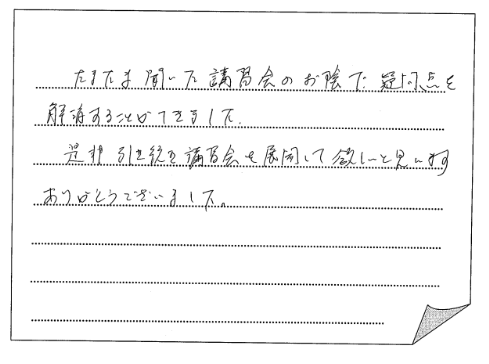 たまたま聞いた講習会のお陰で疑問点を
解消することができました。
是非引き続き講習会を展開して欲しいと思います
ありがとうございました。